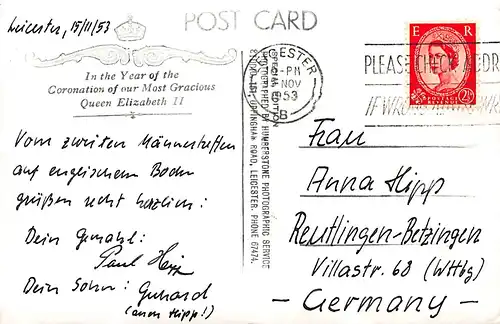 Leicester, 15/11/53
POST CARD
In the Year of the
Coronation of our Most Gracious
Queen Elizabeth II
Vom zweiten Männertreffen
auf englischem Boden
grüßen recht herzlich:
Dein Gemahl:
Paul Hipp
Dein Sohn: Gerhard
(auch Hipp!)
SPECIAL EDITION
PHOTOGRAPHED BY HUMBERSTONE PHOTOGRAPHIC SERVICE
UPPINGHAM ROAD, LEICESTER. PHONE 67474.
CESTER
-PM
NOV
1953
B
PLEASE CHECK ADDR
IF WRONG
E R
POSTAGE REVENUE
2½
Frau
Anna Hipp
Reutlingen-Betzingen
Villastr. 68 (Wttbg)
- Germany -